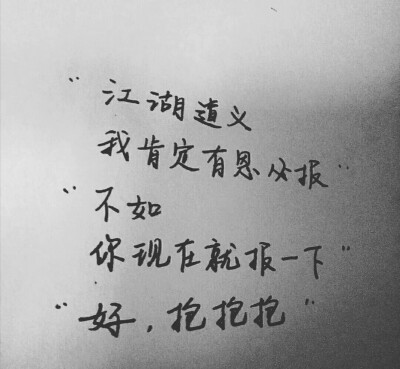 “江湖道义
我肯定有恩必报”
“不如
你现在就报一下”
“好，抱抱抱”